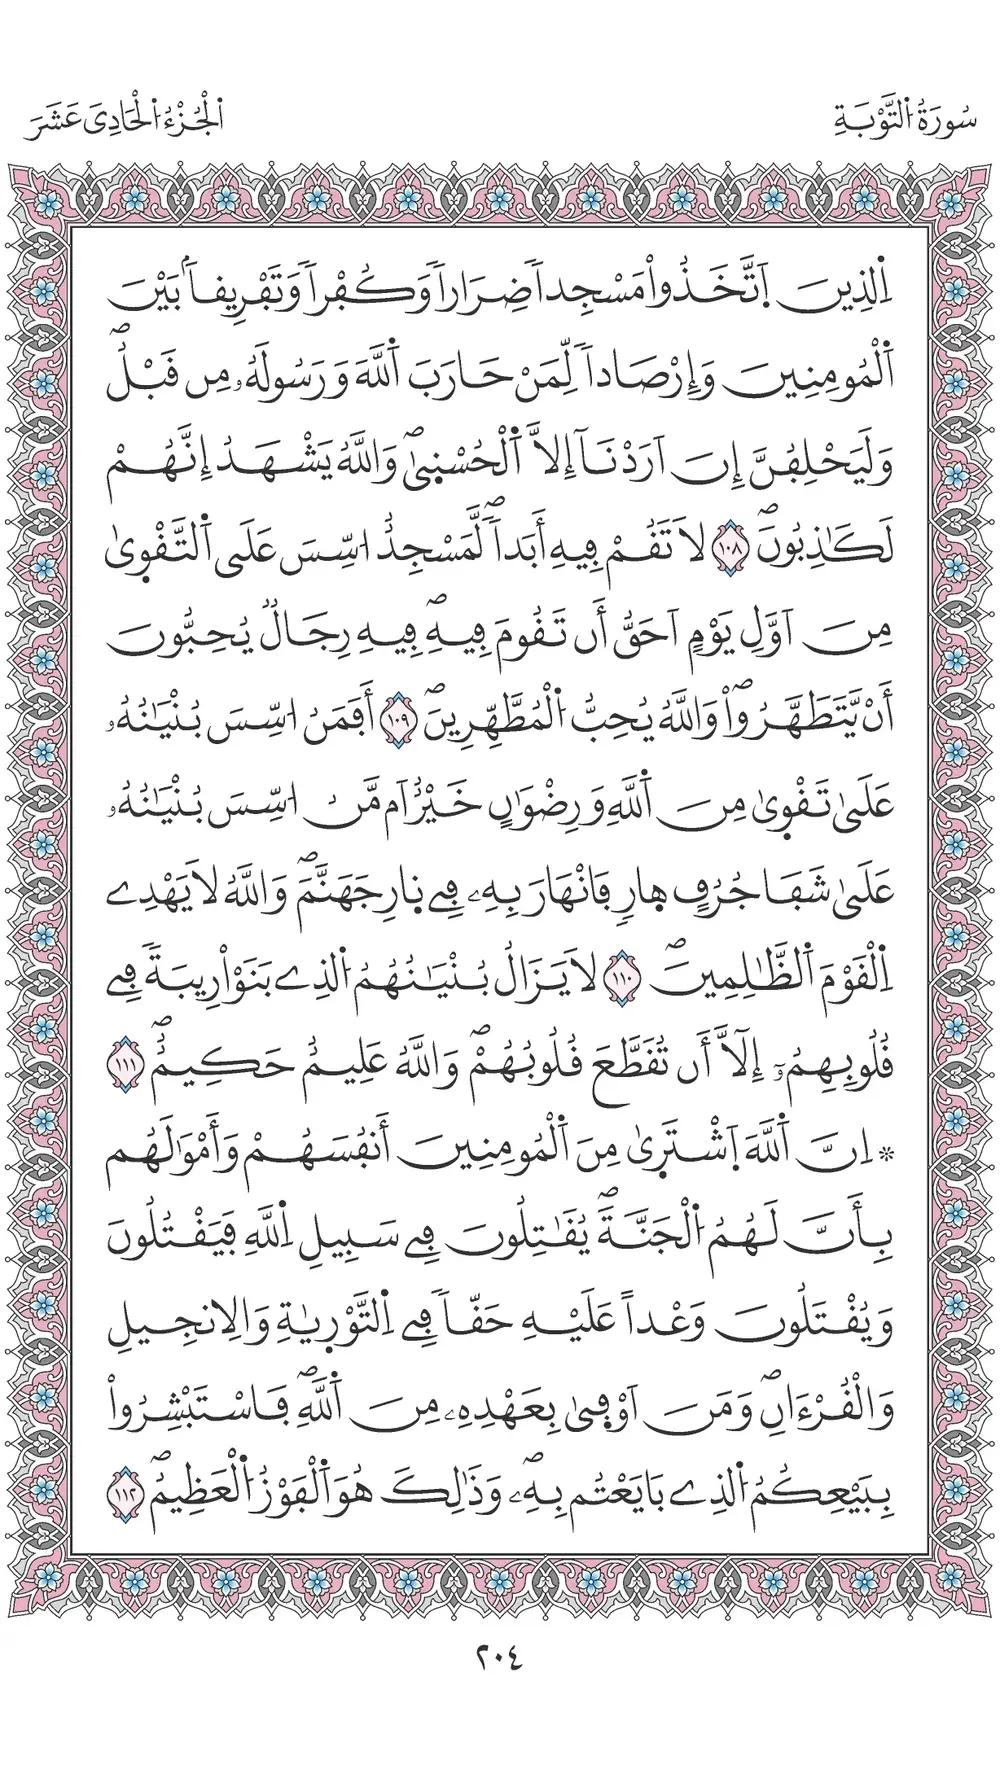 سُورَةُ التَّوْبَةِ
الْجُزْءُ الْحَادِيَ عَشَرَ
اَ۬لذِينَ اَ۪تَّخَذُواْ مَسْجِداٗ ضِرَاراٗ وَكُفْراٗ وَتَفْرِيقاَۢ بَيْنَ
اَ۬لْمُومِنِينَ وَإِرْصَاداٗ لِّمَنْ حَارَبَ اَ۬للَّهَ وَرَسُولَهُۥ مِن قَبْلُۖ
وَلَيَحْلِفُنَّ إِنَ اَرَدْنَآ إِلَّا اَ۬لْحُسْنۭيٰۖ وَاللَّهُ يَشْهَدُ إِنَّهُمْ
لَكَٰذِبُونَۖ ١٠٨ لَا تَقُمْ فِيهِ أَبَداٗۖ لَّمَسْجِدٌ ا۟سِّسَ عَلَي اَ۬لتَّقْو۪يٰ
مِنَ اَوَّلِ يَوْمٍ اَحَقُّ أَن تَقُومَ فِيهِۖ فِيهِ رِجَالٞ يُحِبُّونَ
أَنْ يَّتَطَهَّرُواْۖ وَاللَّهُ يُحِبُّ اُ۬لْمُطَّهِّرِينَۖ ١٠٩ أَفَمَنُ ا۟سِّسَ بُنْيَٰنُهُۥ
عَلَيٰ تَقْو۪يٰ مِنَ اَ۬للَّهِ وَرِضْوَٰنٍ خَيْرٌ اَم مَّنُ ا۟سِّسَ بُنْيَٰنُهُۥ
عَلَيٰ شَفَا جُرُفٍ ه۪ارٖ فَانْهَارَ بِهِۦ فِے ن۪ارِ جَهَنَّمَۖ وَاللَّهُ لَا يَهْدِے
اِ۬لْقَوْمَ اَ۬لظَّٰلِمِينَۖ ١١٠ لَا يَزَالُ بُنْيَٰنُهُمُ اُ۬لذِے بَنَوْاْ رِيبَةٗ فِے
قُلُوبِهِمُۥٓ إِلَّآ أَن تُقَطَّعَ قُلُوبُهُمْۖ وَاللَّهُ عَلِيمٌ حَكِيمٌۖ ١١١
۞ اِنَّ اَ۬للَّهَ اَ۪شْتَر۪يٰ مِنَ اَ۬لْمُومِنِينَ أَنفُسَهُمْ وَأَمْوَٰلَهُم
بِأَنَّ لَهُمُ اُ۬لْجَنَّةَۖ يُقَٰتِلُونَ فِے سَبِيلِ اِ۬للَّهِ فَيَقْتُلُونَ
وَيُقْتَلُونَ وَعْداً عَلَيْهِ حَقّاٗ فِے اِ۬لتَّوْر۪يٰةِ وَالِانجِيلِ
وَالْقُرْءَانِۖ وَمَنَ اَوْف۪يٰ بِعَهْدِهِۦ مِنَ اَ۬للَّهِۖ فَاسْتَبْشِرُواْ
بِبَيْعِكُمُ اُ۬لذِے بَايَعْتُم بِهِۦۖ وَذَٰلِكَ هُوَ اَ۬لْفَوْزُ اُ۬لْعَظِيمُۖ ١١٢
٢٠٤